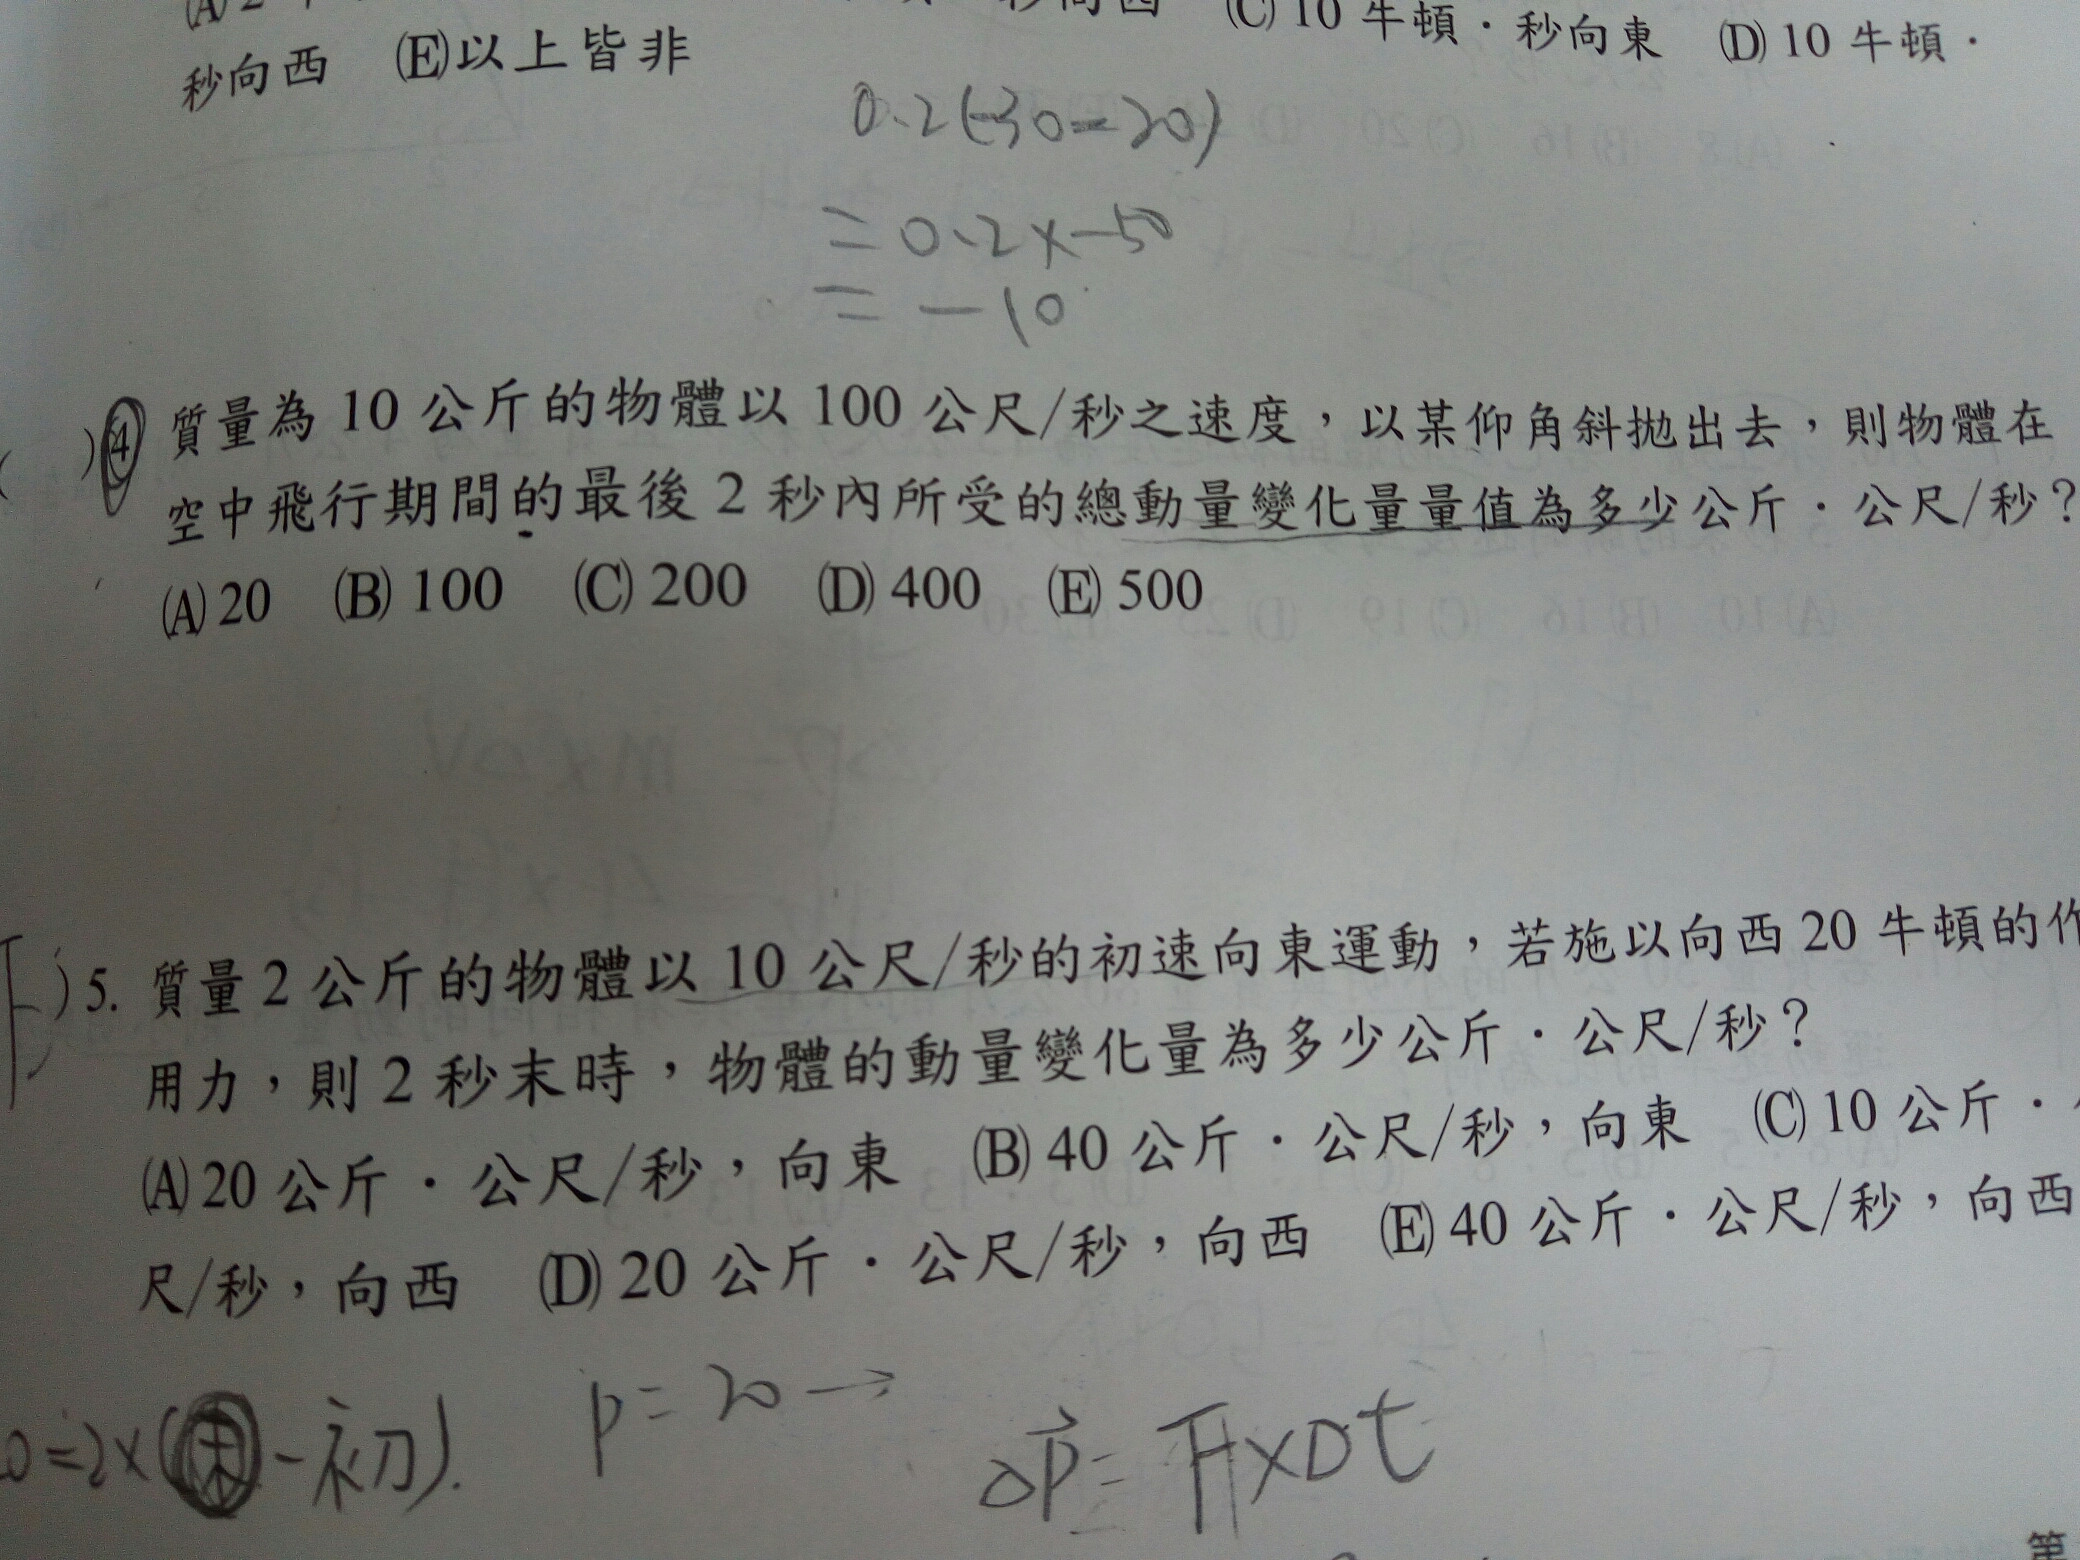 (A) 2 秒向西 (C) 10 牛頓．秒向東 (D) 10 牛頓．
秒向西 (E)以上皆非
0.2(-30-20)
=0.2x-50
=-10
( )4 質量為 10 公斤的物體以 100 公尺/秒之速度，以某仰角斜拋出去，則物體在
空中飛行期間的最後 2 秒內所受的總動量變化量量值為多少公斤．公尺/秒？
(A) 20 (B) 100 (C) 200 (D) 400 (E) 500
)5. 質量 2 公斤的物體以 10 公尺/秒的初速向東運動，若施以向西 20 牛頓的作
用力，則 2 秒末時，物體的動量變化量為多少公斤．公尺/秒？
(A) 20 公斤．公尺/秒，向東 (B) 40 公斤．公尺/秒，向東 (C) 10 公斤．公
尺/秒，向西 (D) 20 公斤．公尺/秒，向西 (E) 40 公斤．公尺/秒，向西
P=20→
0=2x(末-初).
ΔP=FxΔt
第